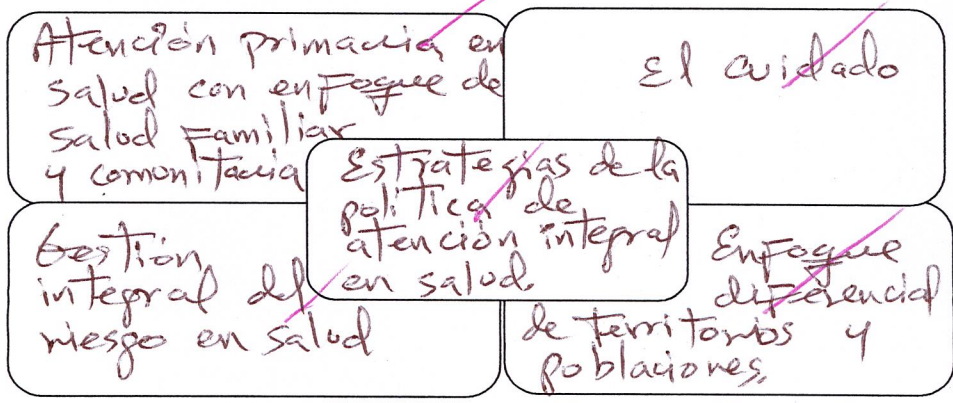 Atención primaria en
salud con enfoque de
salud familiar
y comunitaria
El cuidado
Estrategias de la
política de
atención integral
en salud.
Gestión
integral del
riesgo en salud
Enfoque
diferencial
de territorios y
poblaciones.